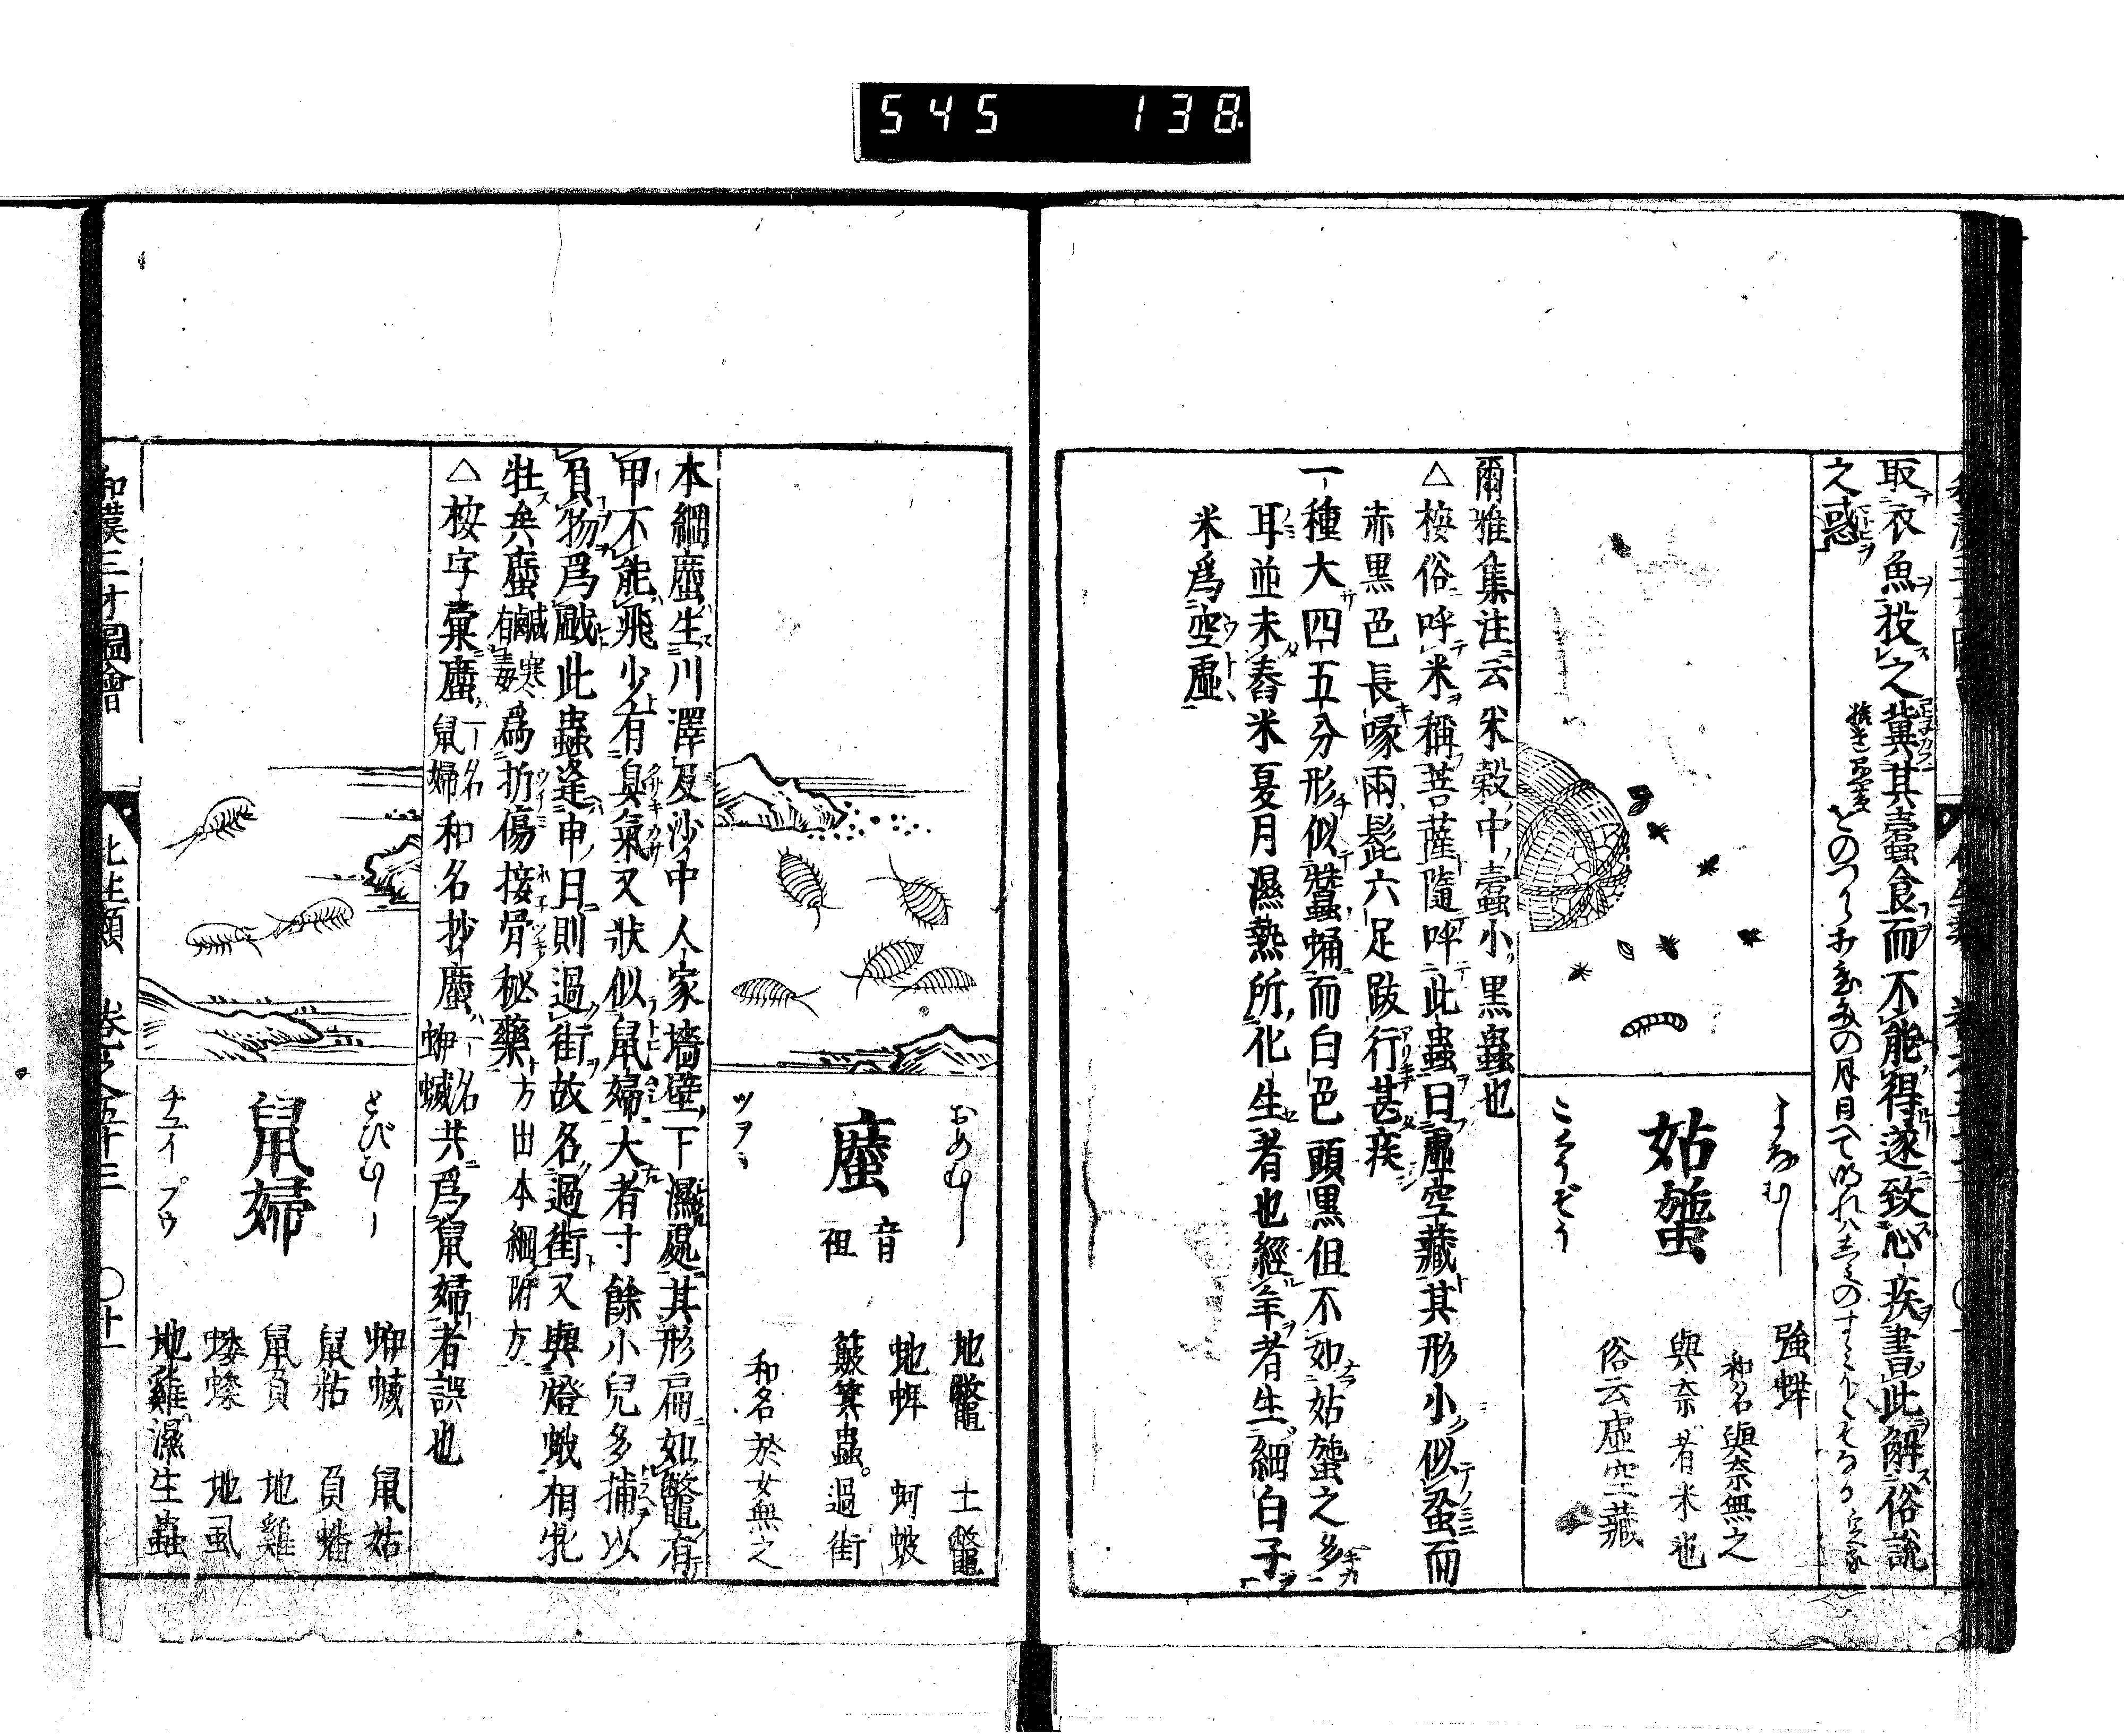 545 138
取衣魚投之冀其蠧食而不能得遂致心疾書此解俗說
之惑
姑䗐
よなむし
こくうぞう
強蛘
和名與奈無之
與奈者米也
俗云虛空藏
爾雅集注云米穀中蠧小黒蟲也
△按俗呼米稱菩薩隨呼此蟲曰虛空藏其形小似蚤而
赤黒色長喙兩髭六足跋行甚疾
一種大四五分形似蠶蛹而白色頭黒但不如姑䗐之多
耳並未舂米夏月濕熱所化生者也經年者生細白子
米爲空虛
おめむし
䗪
音
祖
ツヲヽ
地鼈 土鼈
地蜱 蚵蚾
簸箕蟲 過街
和名於女無之
本綱䗪生川澤及沙中人家墻壁下濕處其形扁如鼈有
甲不能飛少有臭氣又狀似鼠婦大者寸餘小兒多捕以
負物爲戲此蟲逢申日則過街故名過街又與燈蛾相牝
牡矣䗪鹹寒有毒爲折傷接骨秘藥方出本綱附方
△按字彙䗪一名鼠婦和名抄䗪一名蛜蝛共爲鼠婦者誤也
とびむし
鼠婦
チユイ プウ
蛜蝛 鼠姑
鼠粘 負蟠
鼠負 地雞
蜲𧑓 地虱
地雞 濕生蟲
和漢三才圖會 化生類 卷之五十三 〇十一